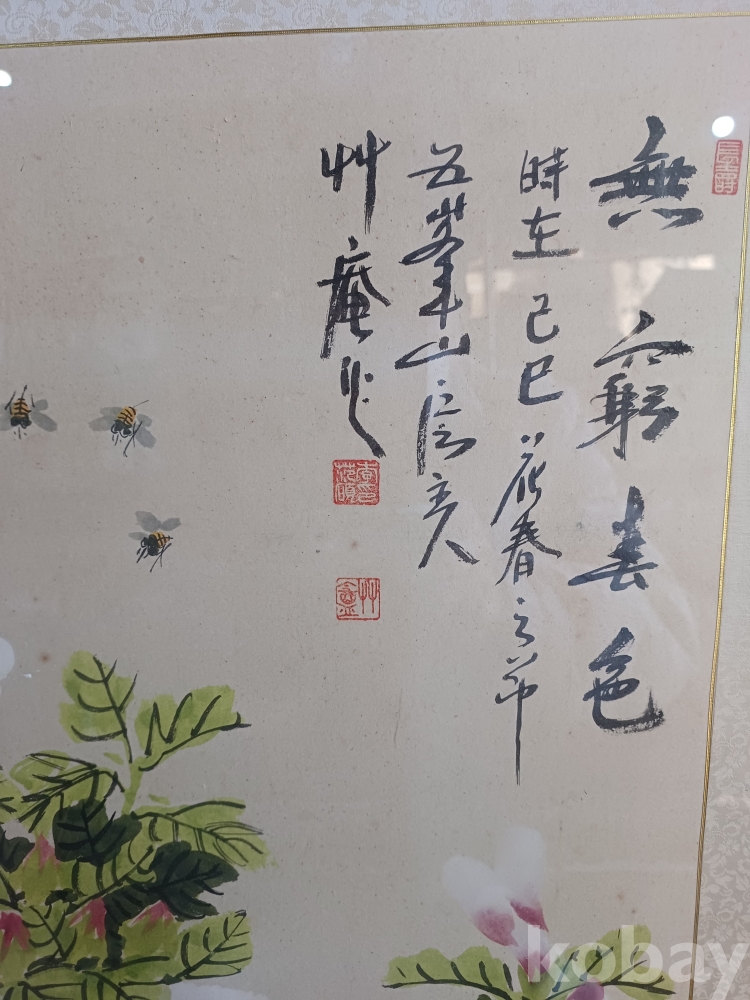 無窮春色
時在己巳花春之節
五峯山房主人
艸庵作
kobay